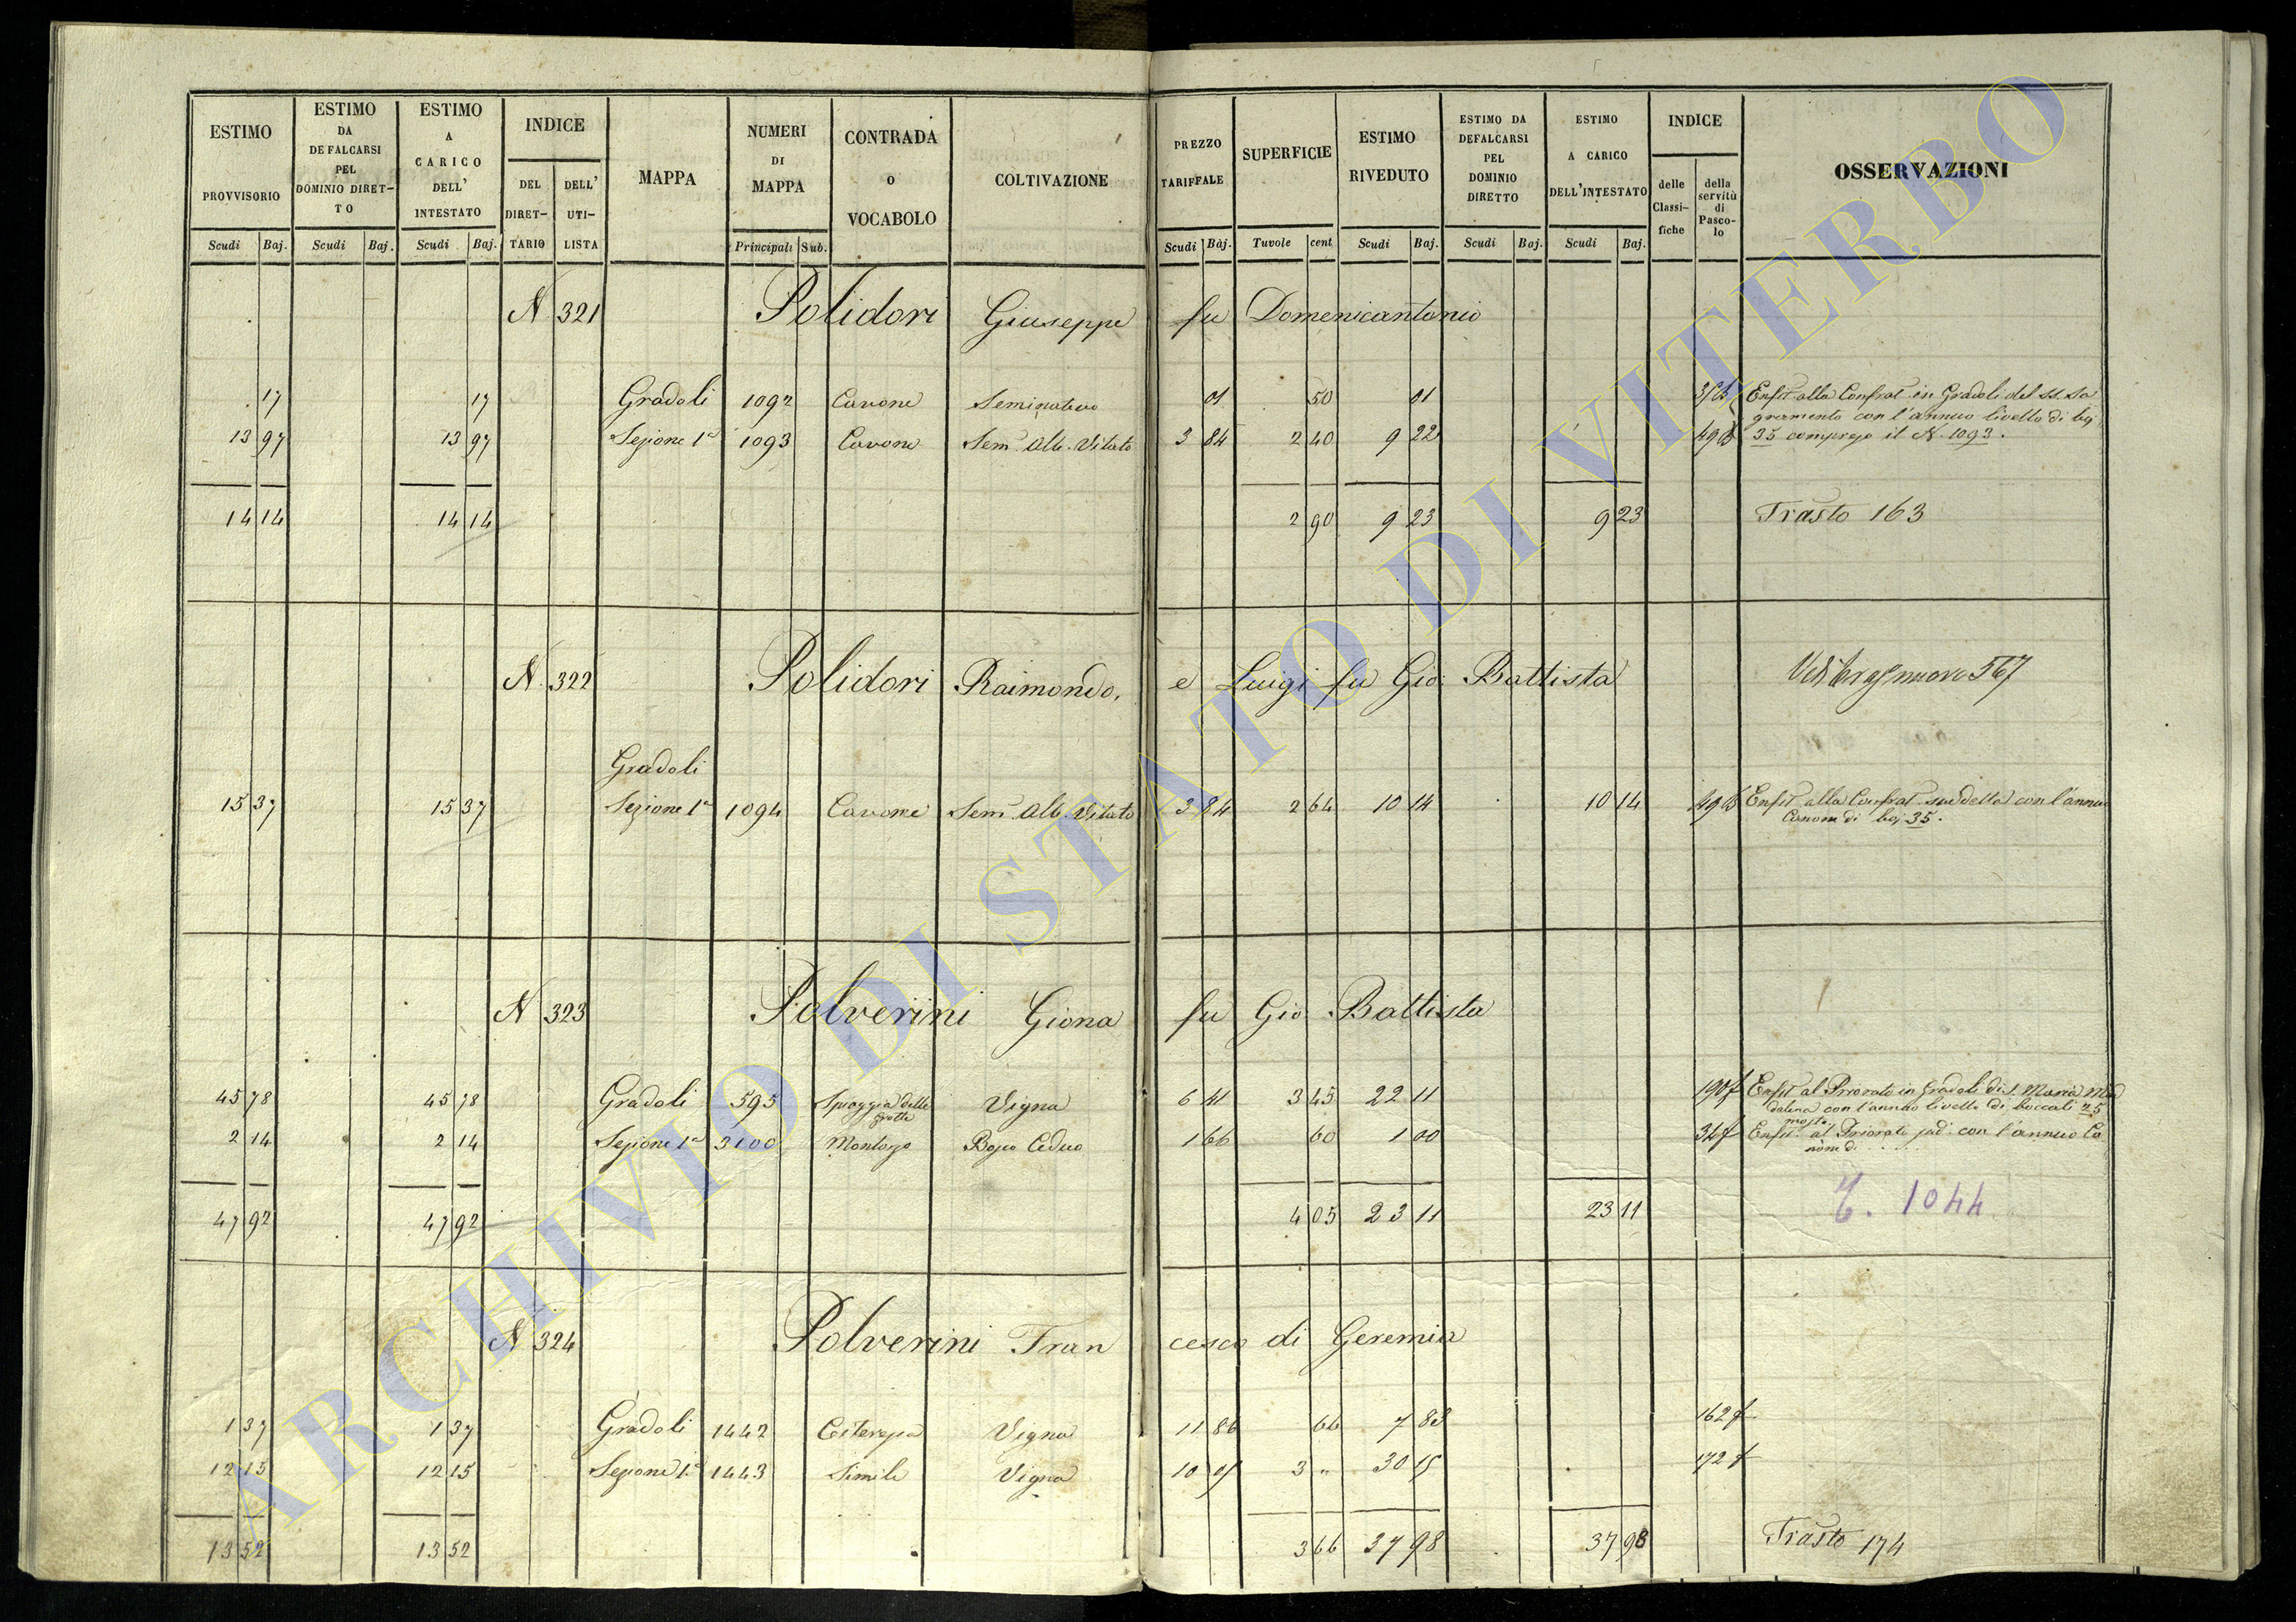 ESTIMO PROVVISORIO Scudi Baj.
ESTIMO DA DEFALCARSI PEL DOMINIO DIRET- TO Scudi Baj.
ESTIMO A CARICO DELL' INTESTATO Scudi Baj.
INDICE DEL DIRET- TARIO DELL' UTI- LISTA
MAPPA
NUMERI DI MAPPA Principali Sub.
CONTRADA O VOCABOLO
COLTIVAZIONE
PREZZO TARIFFALE Scudi Baj.
SUPERFICIE Tavole cent
ESTIMO RIVEDUTO Scudi Baj.
ESTIMO DA DEFALCARSI PEL DOMINIO DIRETTO Scudi Baj.
ESTIMO A CARICO DELL'INTESTATO Scudi Baj.
INDICE delle Classi- fiche della servitù di Pasco- lo
OSSERVAZIONI
N. 321 Polidori Giuseppe fu Domenicantonio
17 17 Gradoli 1092 Cavone Seminativo 01 50 01 Enfit. alla Confrat. in Gradoli del SS. Sa
gramento con l'annuo livello di baj.
13 97 13 97 Sezione 1a 1093 Cavone Sem. Alb. Vitato 3 84 2 40 9 22 35 compreso il N. 1093.
14 14 14 14 2 90 9 23 9 23 Trasto 163
N. 322 Polidori Raimondo, e Luigi fu Gio. Battista nuovo 567
Gradoli
15 37 15 37 Sezione 1a 1094 Cavone Sem. Alb. Vitato 3 84 2 64 10 14 10 14 Enfit. alla Confrat. suddetta con l'annuo
Canone di baj. 35.
N. 323 Polverini Giona fu Gio. Battista
45 78 45 78 Gradoli 595 Spiaggia delle Grotte Vigna 6 41 3 45 22 11 190 f Enfit. al Priorato in Gradoli di S. Maria Mad
dalena con l'annuo livello di boccali 25
mosto
2 14 2 14 Sezione 1a 3100 Montorzo Bosco Ceduo 1 66 60 1 00 34 f Enfit. al Priorato sud. con l'annuo Ca
none di . . . . .
47 92 47 92 4 05 23 11 23 11 T. 1044
N. 324 Polverini Fran cesco di Geremia
1 37 1 37 Gradoli 1442 Vigna 11 86 66 7 83 162 f
12 15 12 15 Sezione 1a 1443 Simile Vigna 10 05 3 " 30 15 172 f
13 52 13 52 3 66 37 98 37 98 Trasto 174
ARCHIVIO DI STATO DI VITERBO